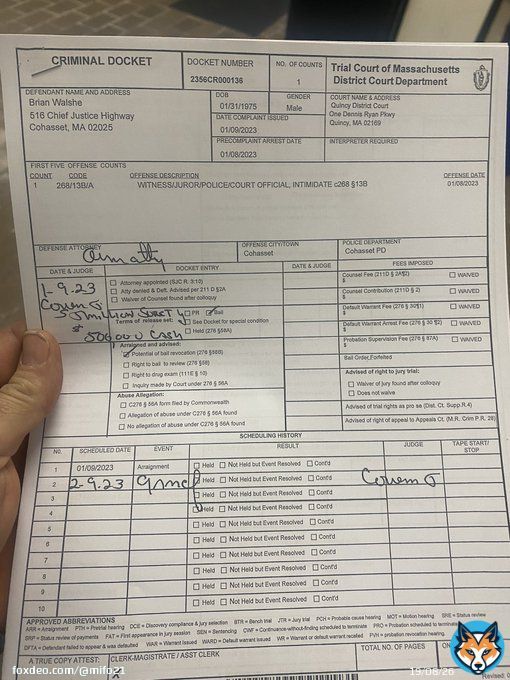 CRIMINAL DOCKET
DOCKET NUMBER
2356CR000136
NO. OF COUNTS
1
Trial Court of Massachusetts
District Court Department
DEFENDANT NAME AND ADDRESS
Brian Walshe
516 Chief Justice Highway
Cohasset, MA 02025
DOB
01/31/1975
GENDER
Male
DATE COMPLAINT ISSUED
01/09/2023
PRECOMPLAINT ARREST DATE
01/08/2023
COURT NAME & ADDRESS
Quincy District Court
One Dennis Ryan Pkwy
Quincy, MA 02169
INTERPRETER REQUIRED
FIRST FIVE OFFENSE COUNTS
COUNT CODE OFFENSE DESCRIPTION OFFENSE DATE
1 268/13B/A WITNESS/JUROR/POLICE/COURT OFFICIAL, INTIMIDATE c268 §13B 01/08/2023
DEFENSE ATTORNEY
OFFENSE CITY/TOWN
Cohasset
POLICE DEPARTMENT
Cohasset PD
DATE & JUDGE
DOCKET ENTRY
DATE & JUDGE
FEES IMPOSED
1-9.23
Attorney appointed (SJC R. 3:10)
Atty denied & Deft. Advised per 211 D §2A
Waiver of Counsel found after colloquy
Terms of release set:
PR
Bail
See Docket for special condition
Held (276 §58A)
5 Million Surety
$ 500,000 Cash
Arraigned and advised:
Potential of bail revocation (276 §58B)
Right to bail to review (276 §58)
Right to drug exam (111E § 10)
Inquiry made by Court under 276 § 56A
Abuse Allegation:
C276 § 56A form filed by Commonwealth
Allegation of abuse under C276 § 56A found
No allegation of abuse under C276 § 56A found
Counsel Fee (211D § 2A¶2)
$
WAIVED
Counsel Contribution (211D § 2)
$
WAIVED
Default Warrant Fee (276 § 30¶1)
$
WAIVED
Default Warrant Arrest Fee (276 § 30 ¶2)
$
WAIVED
Probation Supervision Fee (276 § 87A)
$
WAIVED
Bail Order Forfeited
Advised of right to jury trial:
Waiver of jury found after colloquy
Does not waive
Advised of trial rights as pro se (Dist. Ct. Supp.R.4)
Advised of right of appeal to Appeals Ct. (M.R. Crim P.R. 28)
SCHEDULING HISTORY
NO. SCHEDULED DATE EVENT RESULT JUDGE TAPE START/
STOP
1 01/09/2023 Arraignment Held Not Held but Event Resolved Cont'd
2 2-9.23 Held Not Held but Event Resolved Cont'd
3 Held Not Held but Event Resolved Cont'd
4 Held Not Held but Event Resolved Cont'd
5 Held Not Held but Event Resolved Cont'd
6 Held Not Held but Event Resolved Cont'd
7 Held Not Held but Event Resolved Cont'd
8 Held Not Held but Event Resolved Cont'd
9 Held Not Held but Event Resolved Cont'd
10 Held Not Held but Event Resolved Cont'd
APPROVED ABBREVIATIONS
ARR = Arraignment PTH = Pretrial hearing DCE = Discovery compliance & jury selection BTR = Bench trial JTR = Jury trial PCH = Probable cause hearing MOT = Motion hearing SRE = Status review
SRP = Status review of payments FAT = First appearance in jury session SEN = Sentencing CWF = Continuance-without-finding scheduled to terminate PRO = Probation scheduled to terminate
DFTA = Defendant failed to appear & was defaulted WAR = Warrant issued WARD = Default warrant issued WR = Warrant or default warrant recalled PVH = probation revocation hearing.
A TRUE COPY ATTEST:
CLERK-MAGISTRATE / ASST CLERK
TOTAL NO. OF PAGES
foxdeo.com/@mifo21
19/08/26